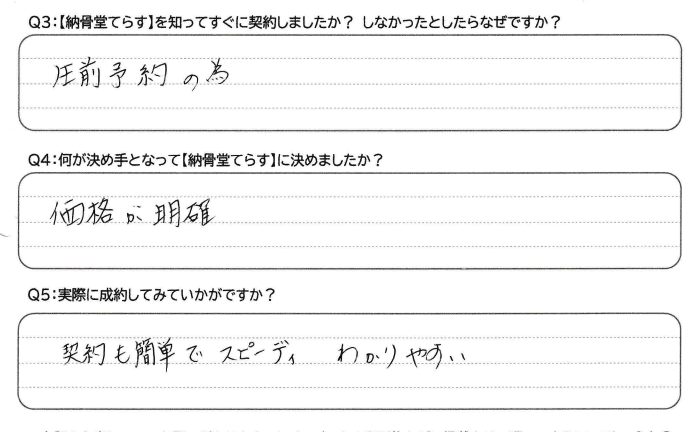 Q3:【納骨堂てらす】を知ってすぐに契約しましたか？ しなかったとしたらなぜですか？
圧前予約の為
Q4:何が決め手となって【納骨堂てらす】に決めましたか？
価格が明確
Q5:実際に成約してみていかがですか？
契約も簡単で スピーディ わかりやすい